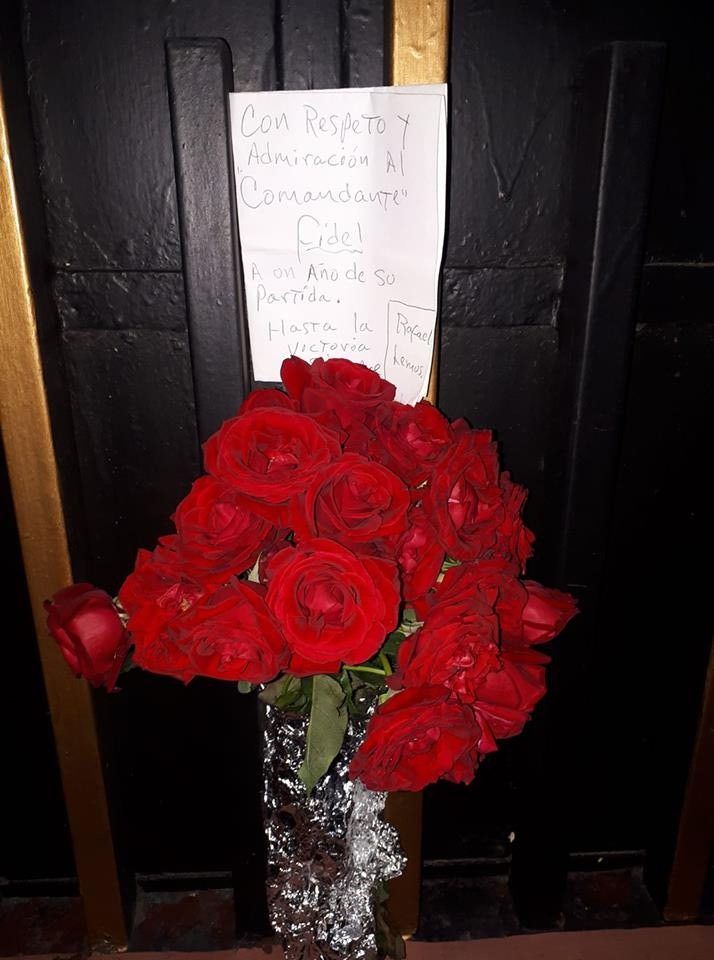 Con Respeto y
Admiración Al
"Comandante"
Fidel
A un Año de su
Partida.
Hasta la
Victoria
Rafael
Lemos.